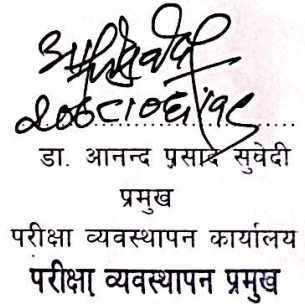 डा. आनन्द प्रसाद सुवेदी
प्रमुख
परीक्षा व्यवस्थापन कार्यालय
परीक्षा व्यवस्थापन प्रमुख